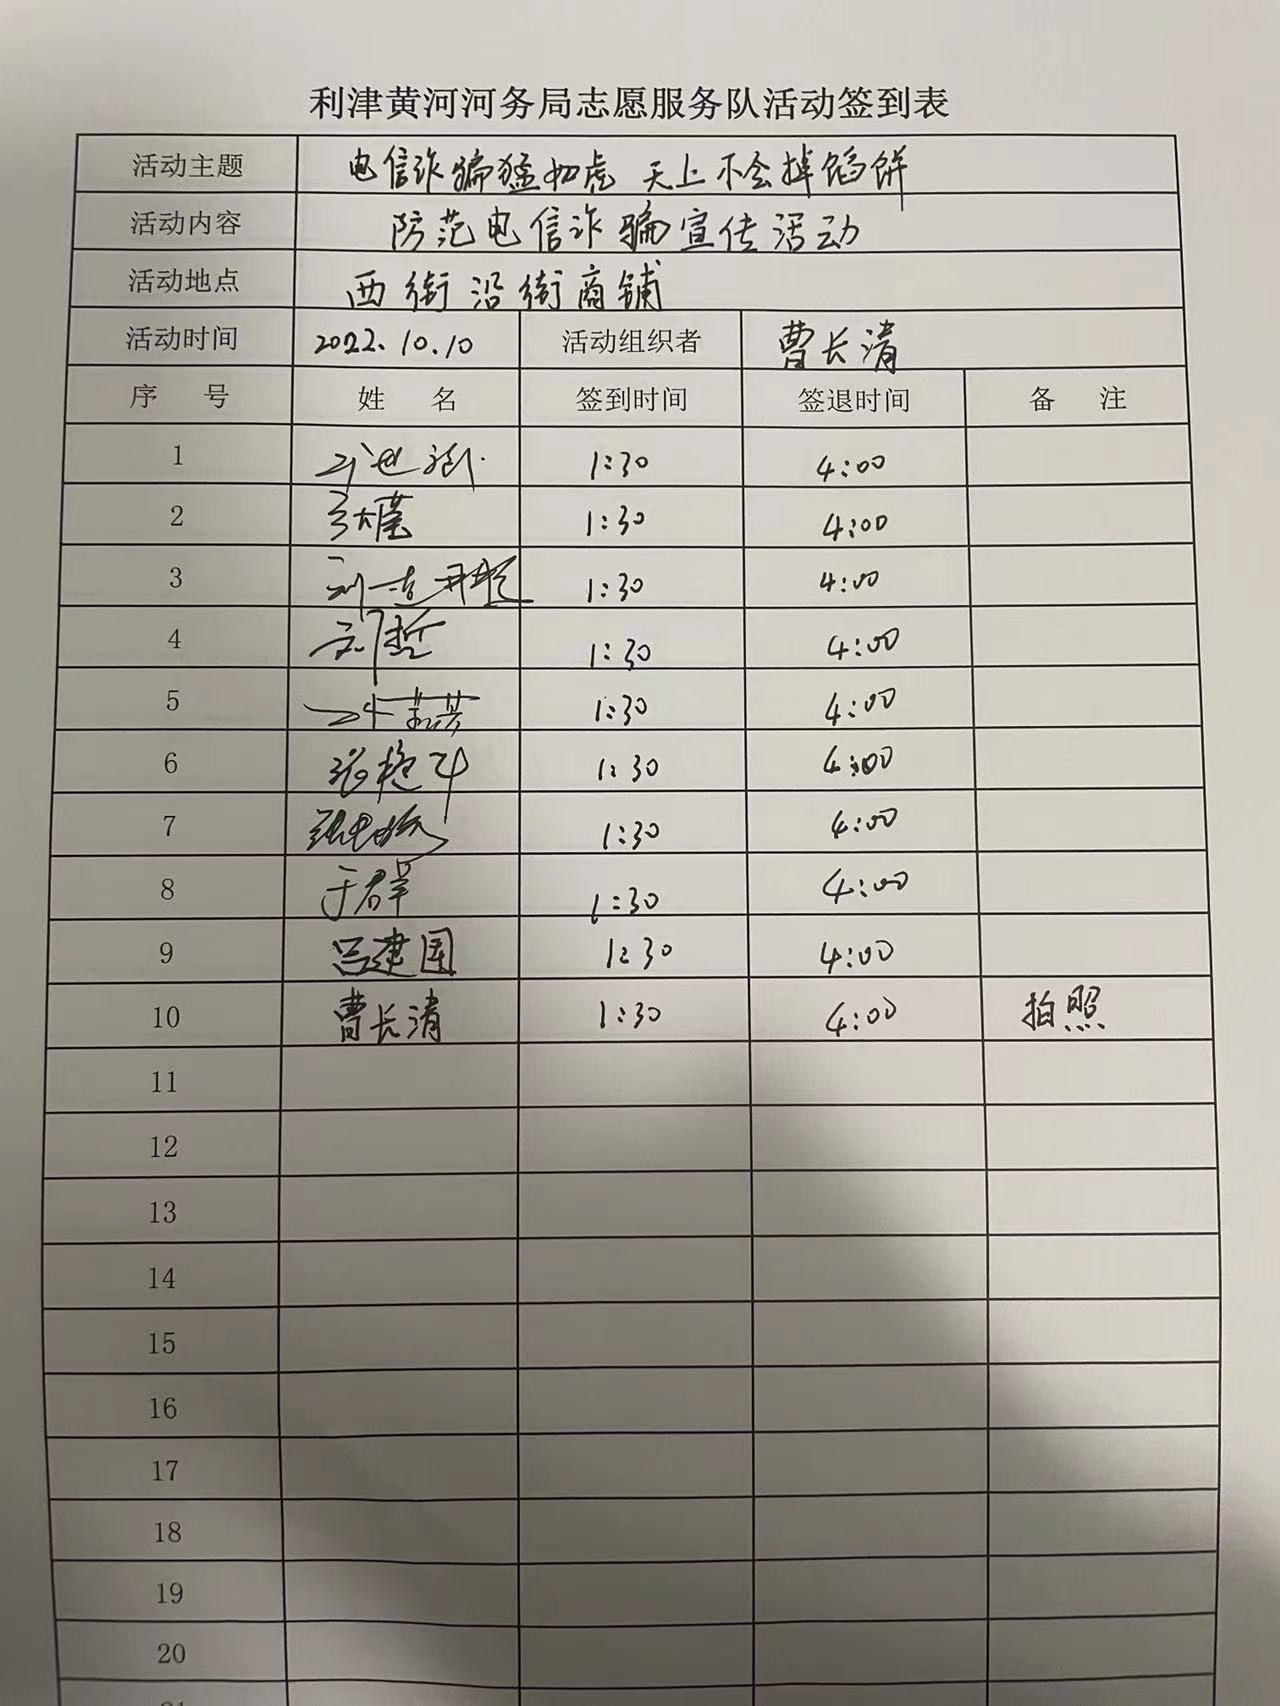 利津黄河河务局志愿服务队活动签到表
活动主题 电信诈骗猛如虎 天上不会掉馅饼
活动内容 防范电信诈骗宣传活动
活动地点 西街沿街商铺
活动时间 2022.10.10 活动组织者 曹长清
序 号 姓 名 签到时间 签退时间 备 注
1 1:30 4:00
2 1:30 4:00
3 1:30 4:00
4 刘哲 1:30 4:00
5 1:30 4:00
6 1:30 4:00
7 1:30 4:00
8 于群 1:30 4:00
9 吕建国 1:30 4:00
10 曹长清 1:30 4:00 拍照
11
12
13
14
15
16
17
18
19
20